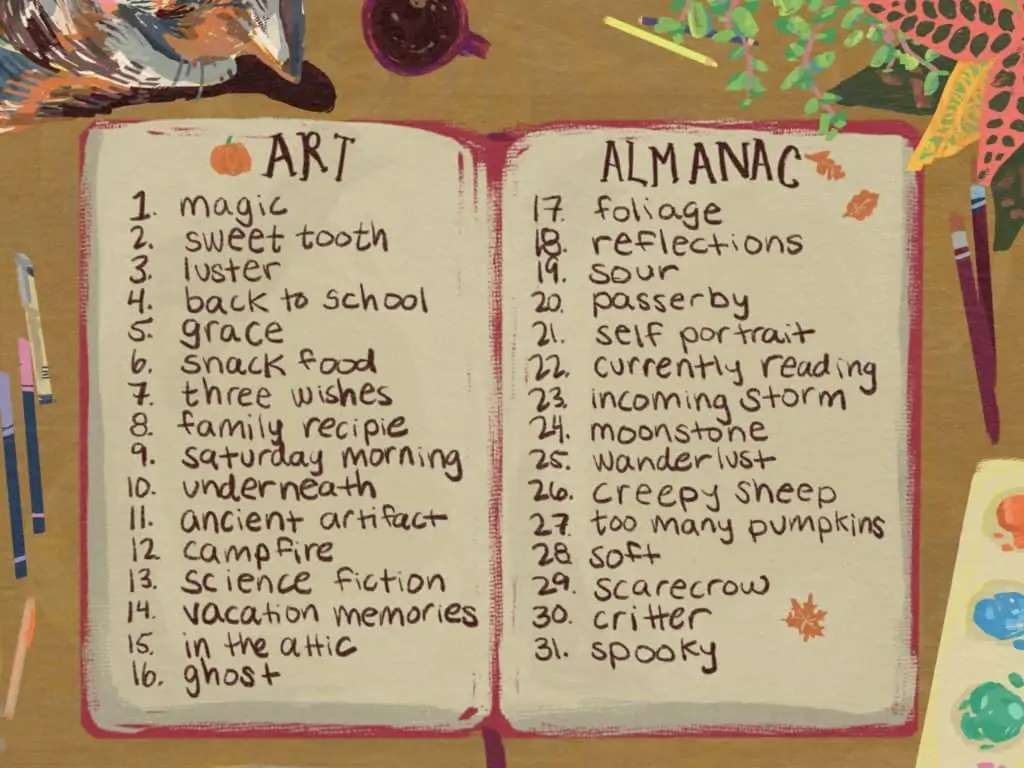 ART
1. magic
2. sweet tooth
3. luster
4. back to school
5. grace
6. snack food
7. three wishes
8. family recipie
9. saturday morning
10. underneath
11. ancient artifact
12 campfire
13. science fiction
14. vacation memories
15. in the attic
16. ghost
ALMANAC
17. foliage
18. reflections
19. sour
20. passerby
21. self portrait
22. currently reading
23. incoming storm
24. moonstone
25. wanderlust
26. creepy sheep
27. too many pumpkins
28 soft
29. scarecrow
30. critter
31. spooky